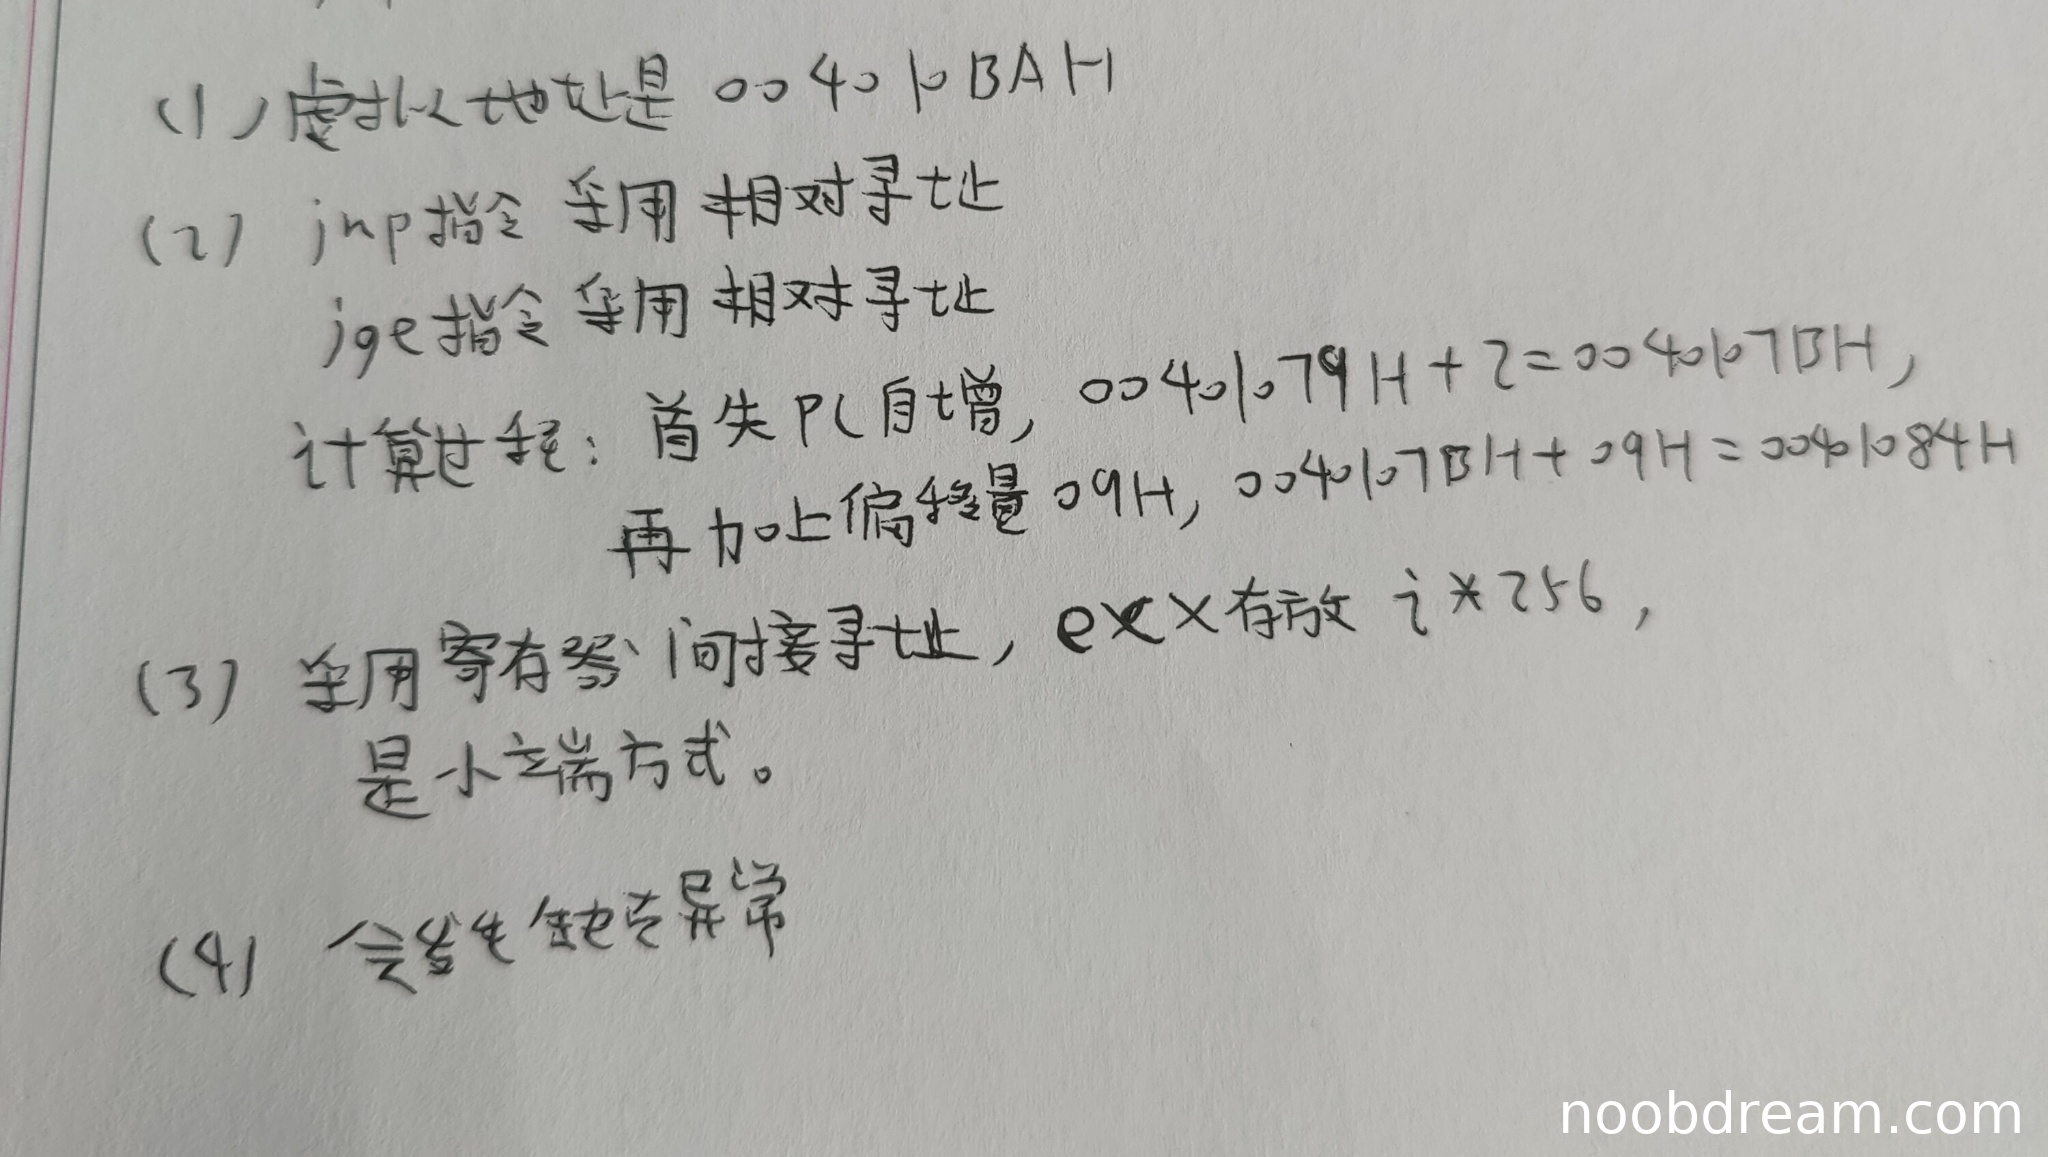 (1) 虚拟地址是 004010BAH
(2) jnp指令 采用 相对寻址
jge指令 采用 相对寻址
计算过程: 首先 PC自增, 00401079H + 2 = 0040107BH,
再加上偏移量 09H, 0040107BH + 09H = 00401084H
(3) 采用寄存器间接寻址, ecx存放 i*256,
是小端方式。
(4) 会发生缺页异常
noobdream.com